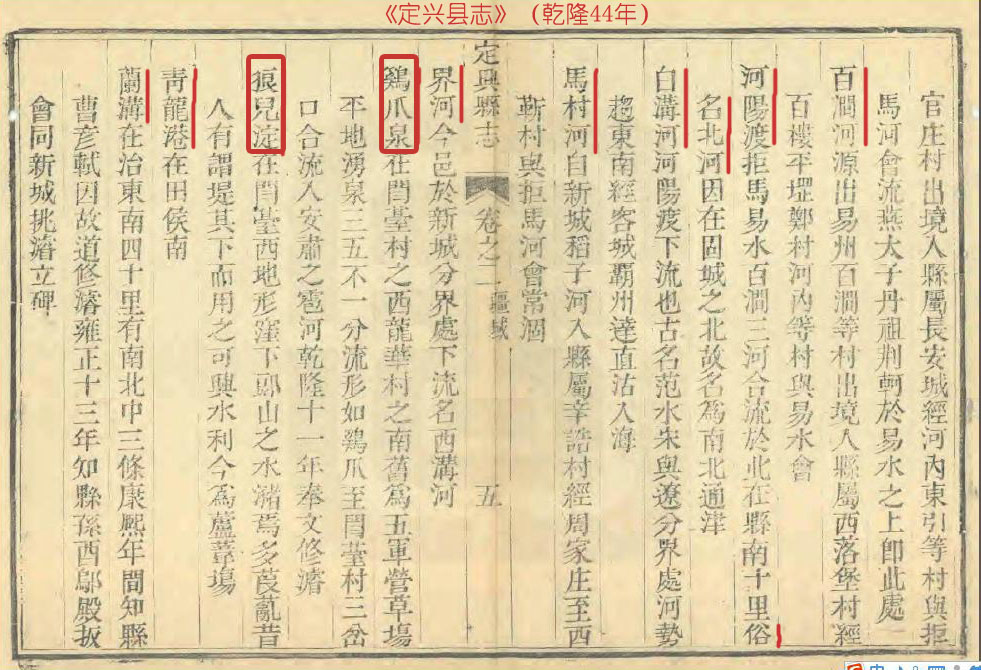 《定兴县志》（乾隆44年）
官庄村出境入縣屬長安城經河內東引等村與拒
馬河會流燕太子丹祖荆軻於易水之上即此處
百澗河源出易州百澗等村出境入縣屬西落堡村經
百樓平堽鄭村河內等村與易水會
河陽渡拒馬易水百澗三河合流於此在縣南十里俗
名北河因在固城之北故名爲南北通津
白溝河河陽渡下流也古名范水宋與遼分界處河勢
趨東南經容城霸州達直沽入海
馬村河自新城稻子河入縣屬辛誥村經周家庄至西
靳村與拒馬河會常涸
定興縣志 卷之二 疆域 五
界河今邑於新城分界處下流名西溝河
鷄爪泉在閆臺村之西龍華村之南舊爲五軍營草塲
平地湧泉三五不一分流形如鷄爪至閆臺村三岔
口合流入安肅之雹河乾隆十一年奉文修濬
狼兒淀在閆臺西地形窪下郎山之水瀦焉多葭薍昔
人有謂堤其下而用之可興水利今爲蘆葦塲
青龍港在田侯南
蘭溝在治東南四十里有南北中三條康熙年間知縣
曹彥軾因故道修濬雍正十三年知縣孫酉鄔殿扳
會同新城挑濬立碑